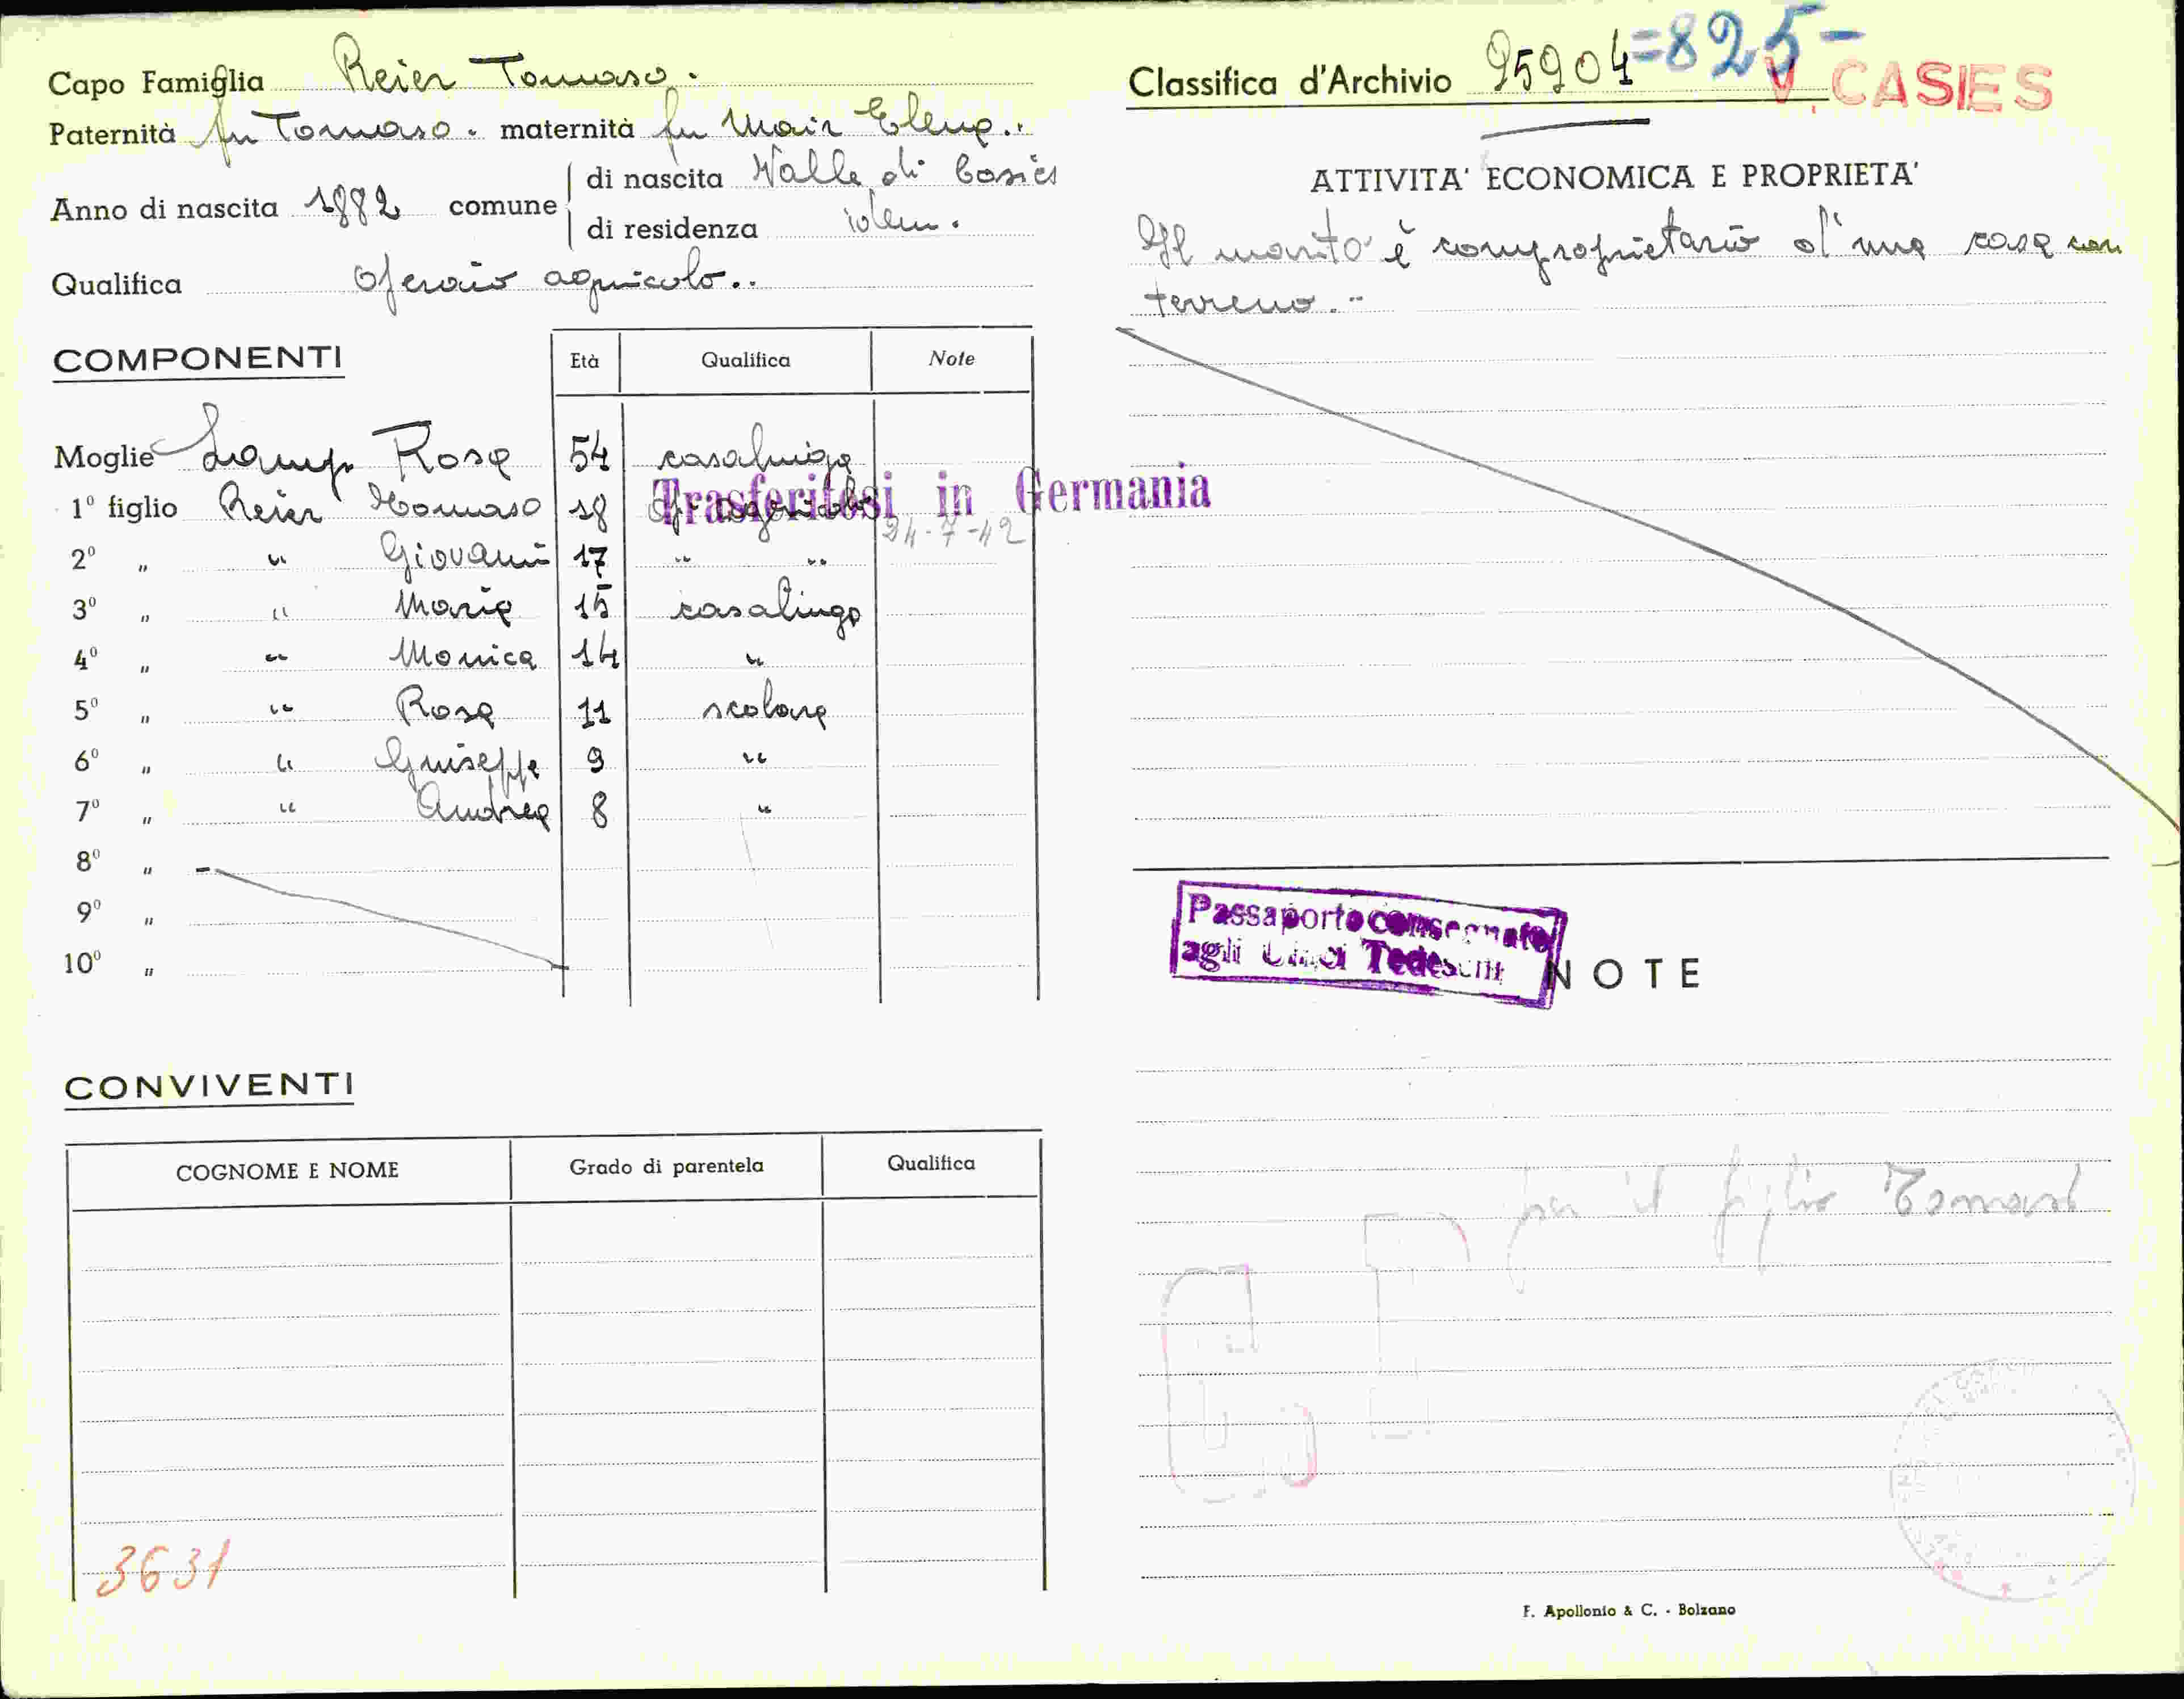 Capo Famiglia Reier Tomaso.
Paternità fu Tomaso. maternità fu Mair Elena..
Anno di nascita 1882 comune di nascita Valle di Casies
di residenza idem.
Qualifica Operaio agricolo..
COMPONENTI Età Qualifica Note
Moglie Lamp. Rosa 54 casalinga
1º figlio Reier Tomaso 18 op. agricolo
Trasferitosi in Germania
24-7-42
2º " " Giovanni 17 " "
3º " " Maria 15 casalinga
4º " " Monica 14 "
5º " " Rosa 11 scolara
6º " " Giuseppe 9 "
7º " " Andrea 8 "
8º "
9º "
10º "
CONVIVENTI
COGNOME E NOME Grado di parentela Qualifica
3631
Classifica d'Archivio 95904=825-
V. CASIES
ATTIVITA' ECONOMICA E PROPRIETA'
Il marito è comproprietario d'una casa con
terreno.-
Passaporto consegnato
agli Uffici Tedeschi
NOTE
per il figlio Tomaso
F. Apollonio & C. - Bolzano